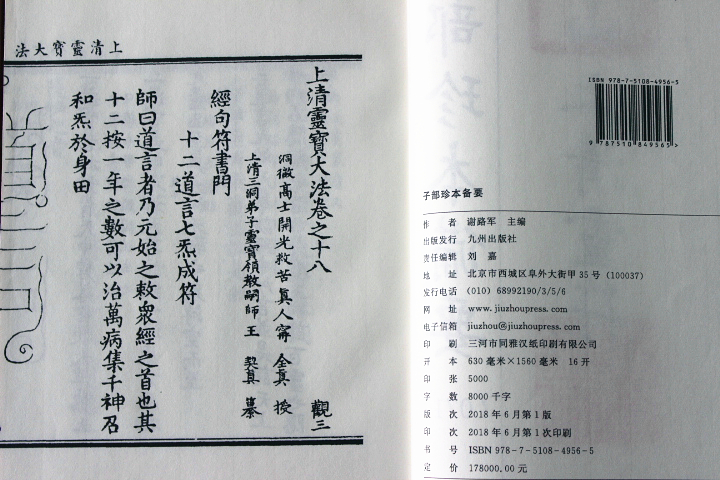 上清靈寶大法
上清靈寶大法卷之十八 觀三
洞微高士開光救苦真人甯 全真 授
上清三洞弟子靈寶領教嗣師王 契真 纂
經句符書門
十二道言七炁成符
師曰道言者乃元始之敕眾經之首也其
十二按一年之數可以治萬病集千神召
和炁於身田
ISBN 978-7-5108-4956-5
9 787510 849565 >
子部珍本备要
作 者 谢路军 主编
出版发行 九州出版社
责任编辑 刘 嘉
地 址 北京市西城区阜外大街甲35号(100037)
发行电话 (010)68992190/3/5/6
网 址 www.jiuzhoupress.com
电子信箱 jiuzhou@jiuzhoupress.com
印 刷 三河市同雅汉纸印刷有限公司
开 本 630毫米×1560毫米 16开
印 张 5000
字 数 8000千字
版 次 2018年6月第1版
印 次 2018年6月第1次印刷
书 号 ISBN 978-7-5108-4956-5
定 价 178000.00元